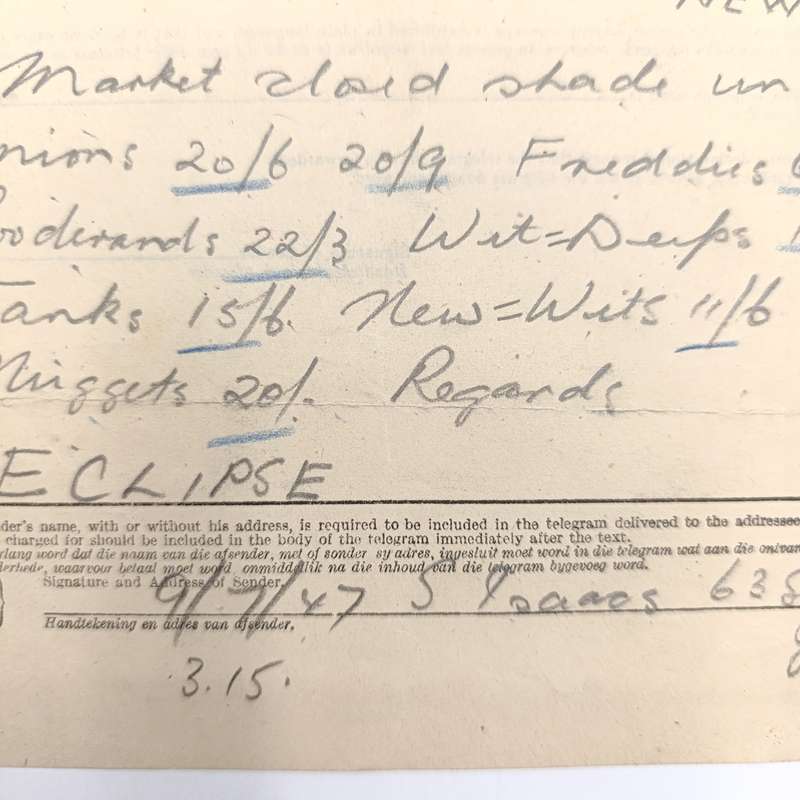 NEW
Market closed shade un
nions 20/6 20/9 Freddies
ooderands 22/3 Wit=Deeps
Tanks 15/6 New=Wits 11/6
Nuggets 20/- Regards
ECLIPSE
der's name, with or without his address, is required to be included in the telegram delivered to the addressee
charged for should be included in the body of the telegram immediately after the text.
rlang word dat die naam van die afsender, met of sonder sy adres, ingesluit moet word in die telegram wat aan die ontvan
derhede, waarvoor betaal moet word, onmiddellik na die inhoud van die telegram bygevoeg word.
Signature and Address of Sender.
9/7/47 S Isaacs 63
Handtekening en adres van afsender.
3.15.